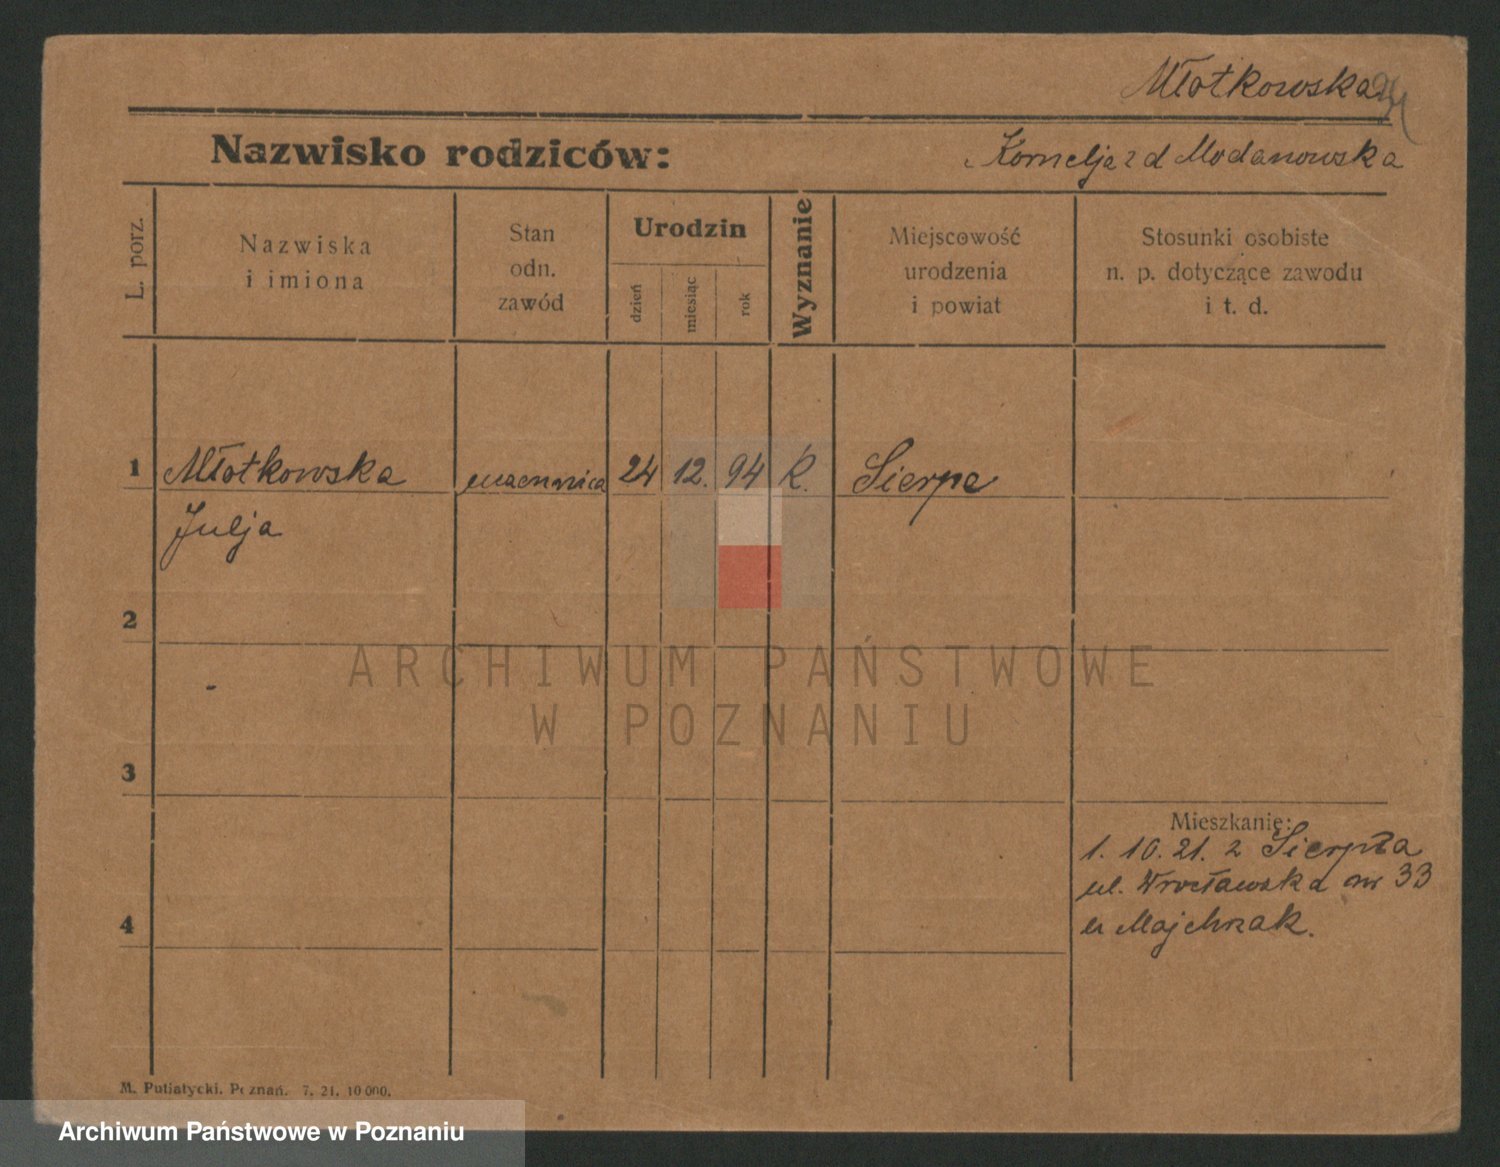 Młotkowska
Nazwisko rodziców:
Kornelja z d Modanowska
L. porz.
Nazwiska
i imiona
Stan
odn.
zawód
Urodzin
dzień
miesiąc
rok
Wyznanie
Miejscowość
urodzenia
i powiat
Stosunki osobiste
n. p. dotyczące zawodu
i t. d.
1 Młotkowska uczennica 24 12. 94 K. Sierpc
Julja
2
ARCHIWUM PAŃSTWOWE
W POZNANIU
3
Mieszkanie:
1. 10. 21. z Sierpca
ul. Wrocławska nr 33
u Majchrzak.
4
M. Putiatycki. Poznań. 7. 21. 10 000.
Archiwum Państwowe w Poznaniu